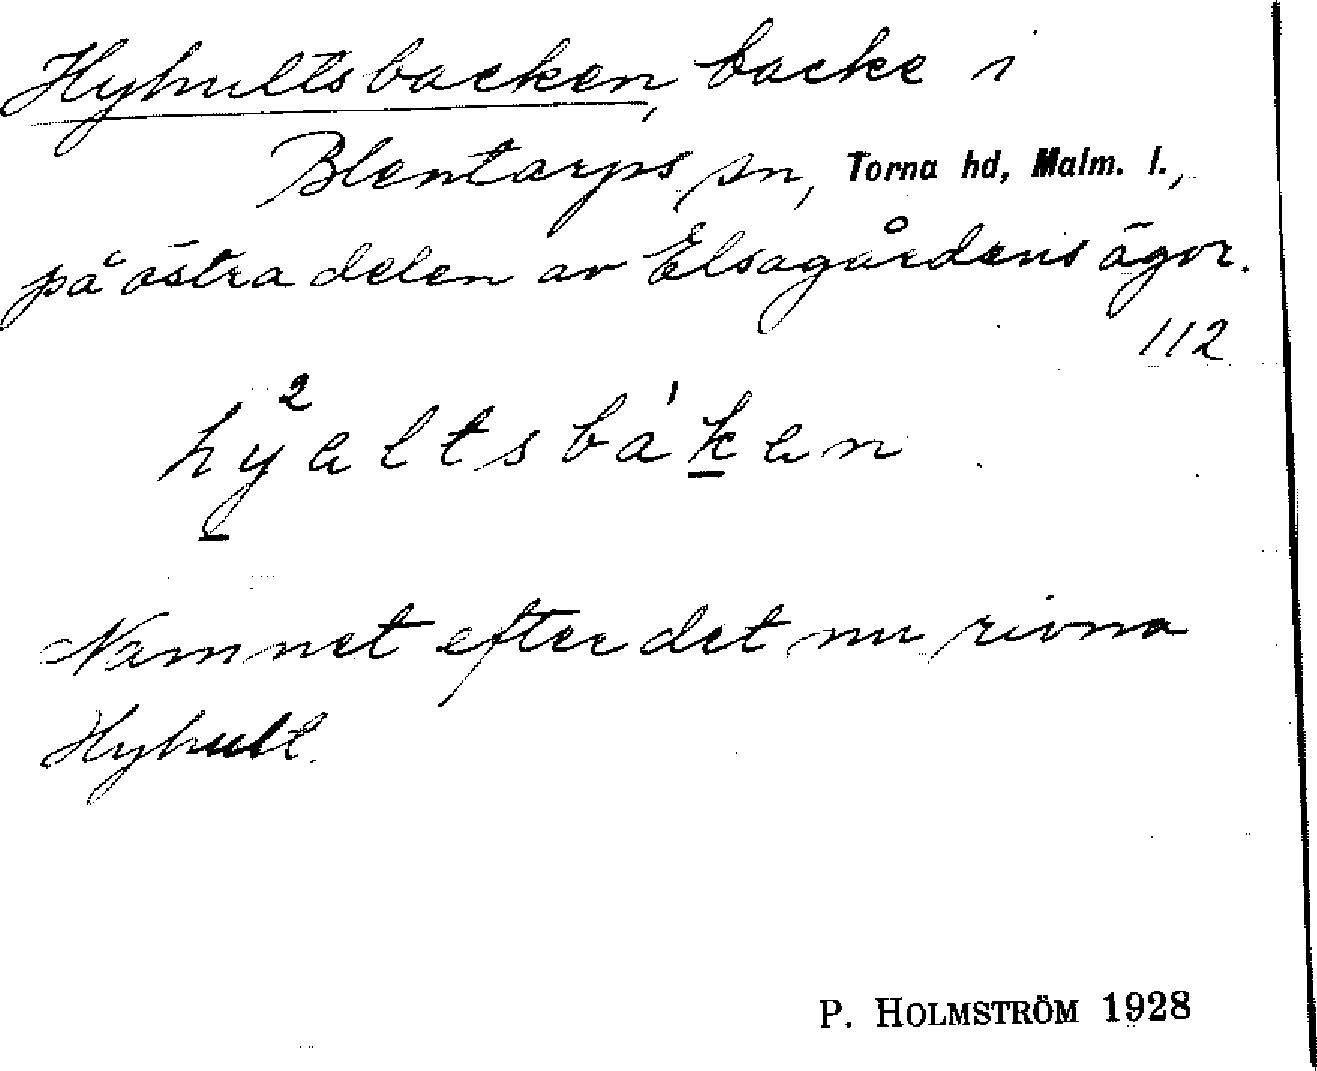 Hyhultsbacken, backe i
Blentarps sn, Torna hd, Malm. l.,
på östra delen av Elsagårdens ägor.
112
hy²altsbá'ken
Namnet efter det nu rivna
Hyhult.
P. HOLMSTRÖM 1928